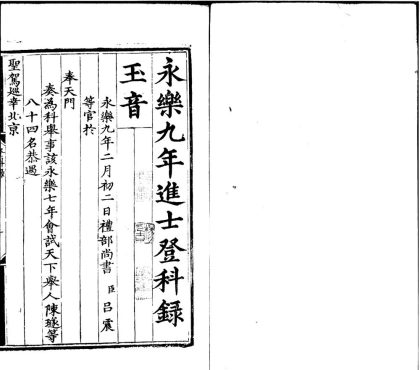 永樂九年進士登科録
玉音
永樂九年二月初二日禮部尚書臣呂震
等官於
奉天門
奏為科舉事該永樂七年會試天下舉人陳璲等
八十四名恭遇
聖駕巡幸北京